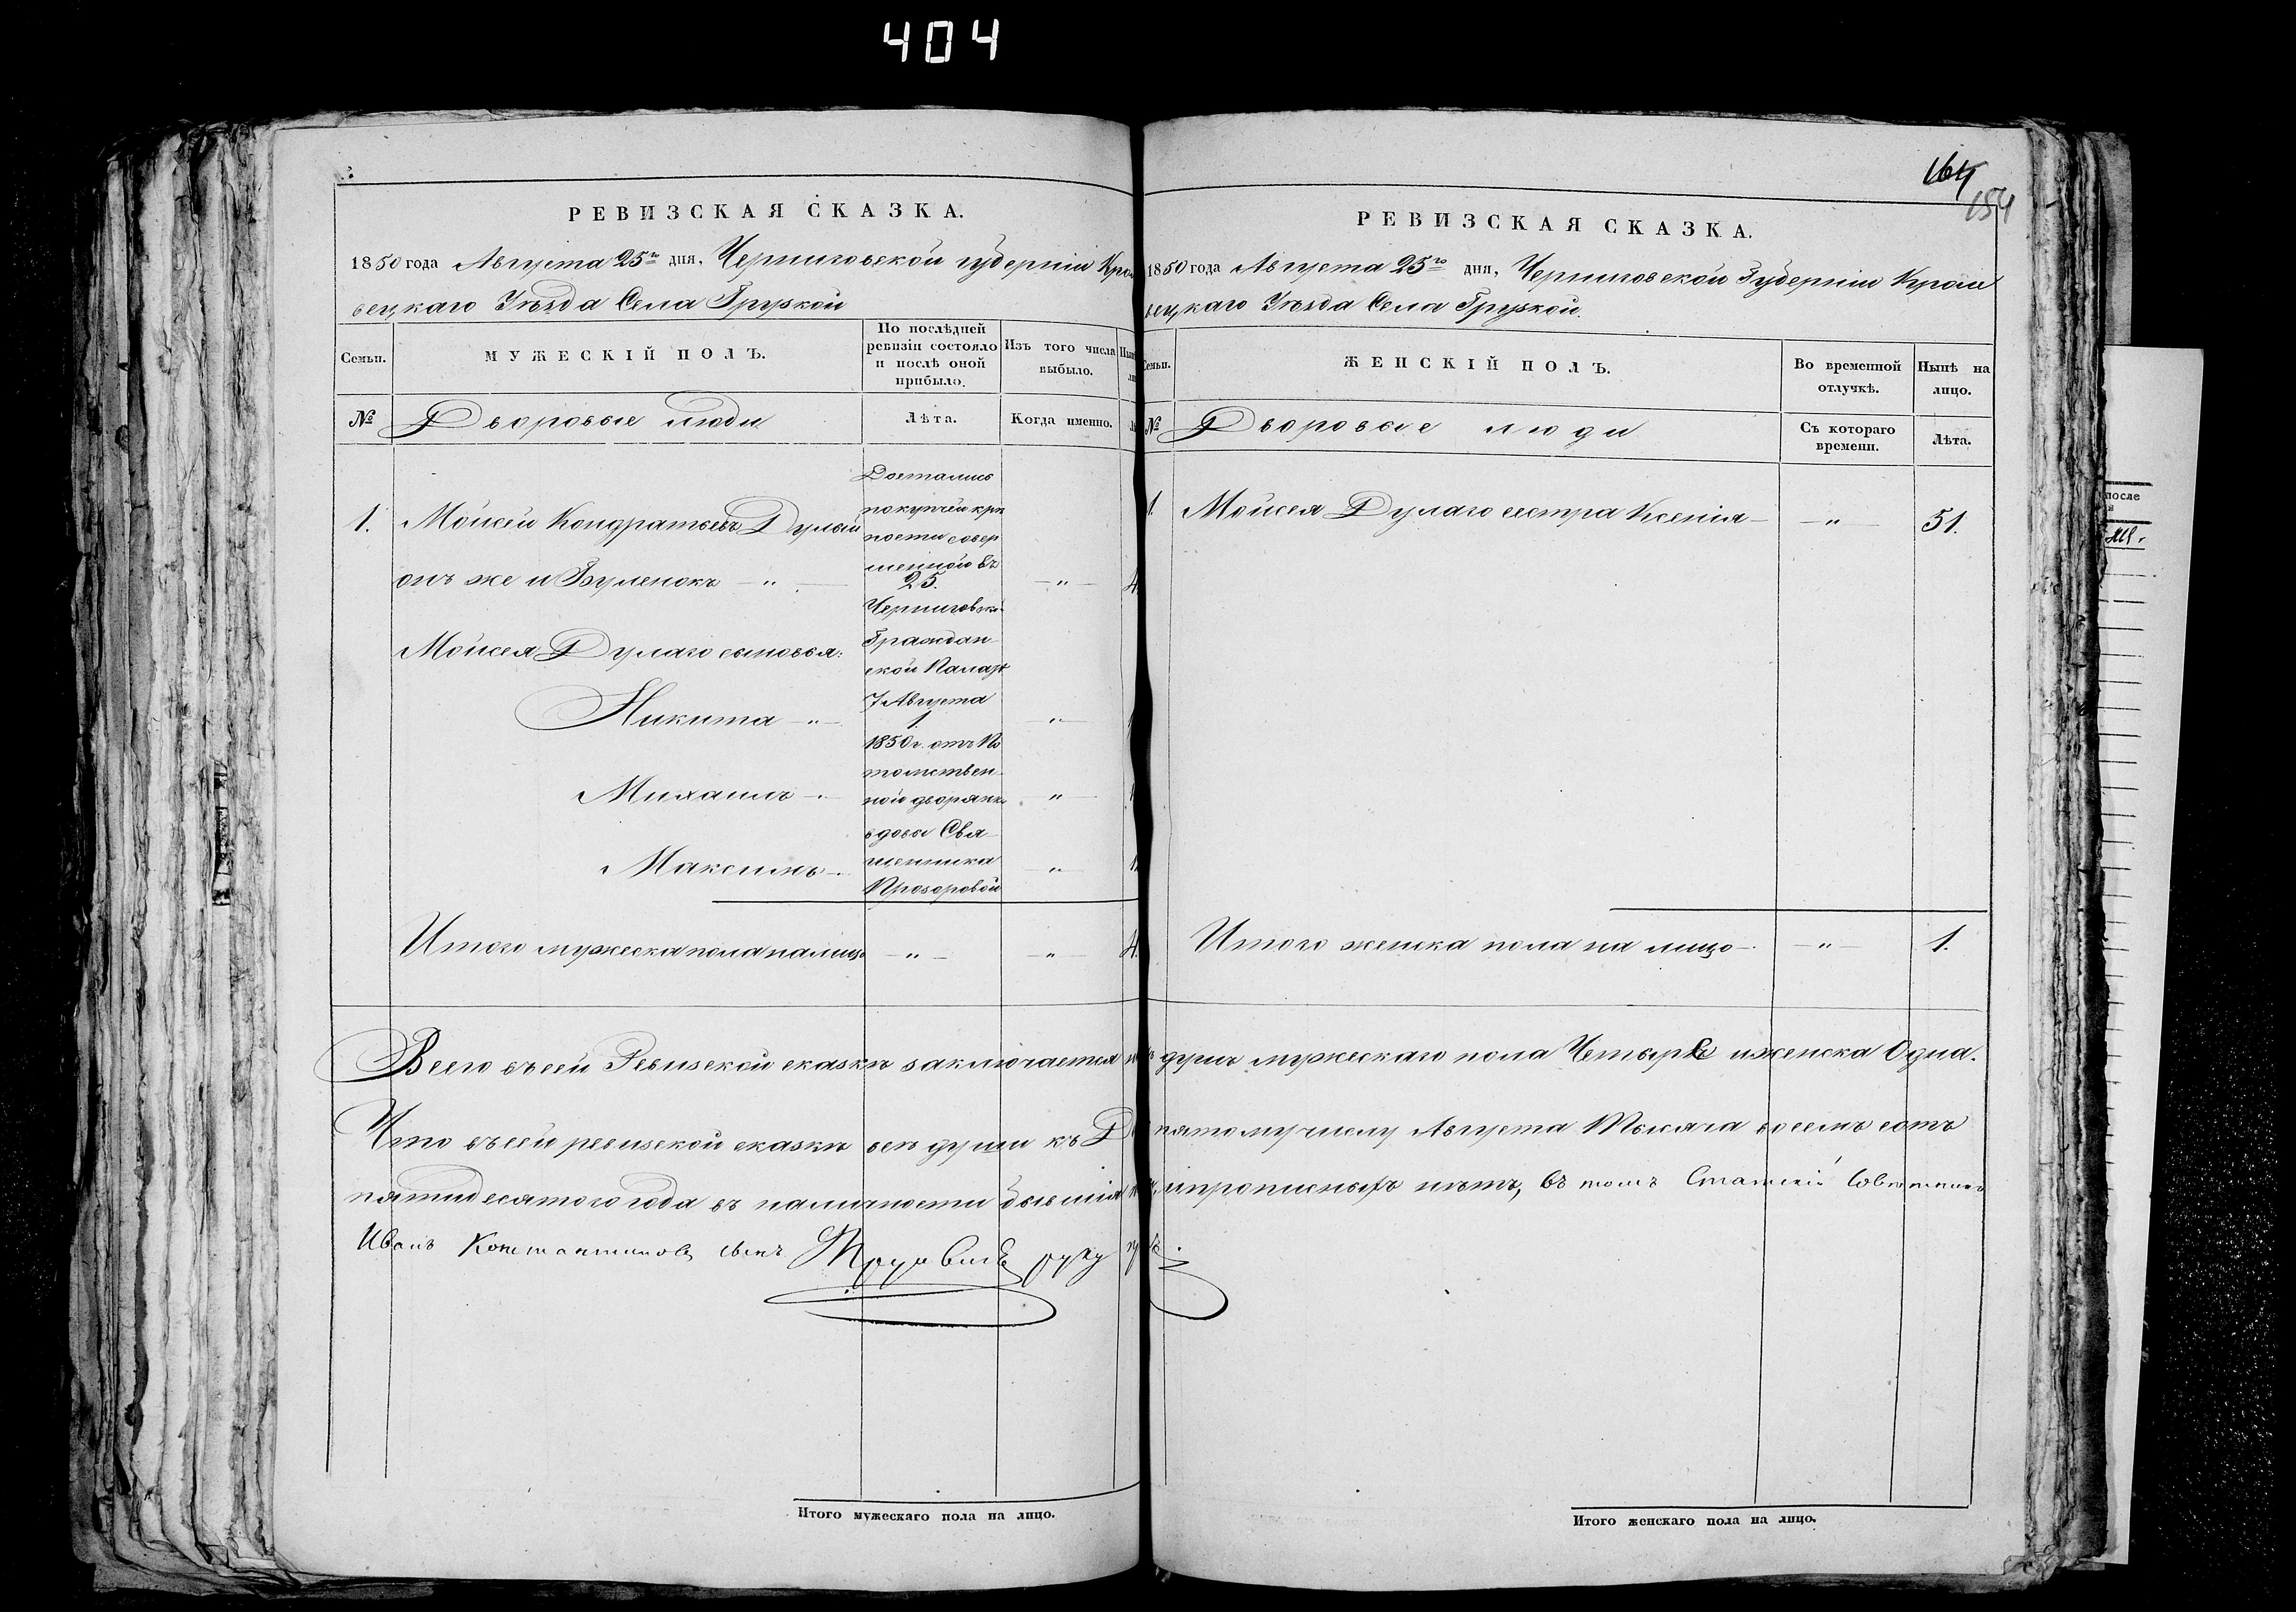 404
164
154
РЕВИЗСКАЯ СКАЗКА.
1850 года Августа 25го дня, Черниговской губерніи Кро
вецкаго Уѣзда Села Грузкой
Семьи.
МУЖЕСКІЙ ПОЛЪ.
По послѣдней
ревизіи состояло
и послѣ оной
прибыло.
Изъ того числа
выбыло.
№
Дворовые люди
Лѣта.
Когда именно.
Достались
покупчей крѣ
пости совер
шенной въ
Черниговско
Граждан
ской Палатѣ
7 Августа
1850 г. отъ По
томствен
ной дворянк
вдовы Свя
щенника
Прозоровой
1. Мойсей Кондратьевъ Дулый
онъ же и Буленокъ — " — 25. — " —
Мойсея Дулаго сыновья:
Никита — " — 1. — " —
Михаилъ — " —
Максимъ — " —
Итого мужеска пола на лицо — " — — " — 4.
РЕВИЗСКАЯ СКАЗКА.
1850 года Августа 25го дня, Черниговской Губерніи Крол
вецкаго Уѣзда Села Грузкой.
Семьи.
ЖЕНСКІЙ ПОЛЪ.
Во временной
отлучкѣ.
Нынѣ на
лицо.
№
Дворовые люди
Съ котораго
времени.
Лѣта.
1. Мойсея Дулаго сестра Ксенія — — " — 51.
Итого женска пола на лицо — — " — 1.
Всего въ сей Ревизской сказкѣ заключается душъ мужескаго пола Четыре и женска Одна.
Что въ сей ревизской сказкѣ всѣ души къ пятому числу Августа Тысяча восемъ сотъ
пятидесятого года въ наличности бывшія и прописныхъ нѣтъ, въ томъ Статскій Совѣтникъ
Иванъ Константиновъ сынъ руку
Итого мужескаго пола на лицо.
Итого женскаго пола на лицо.
после